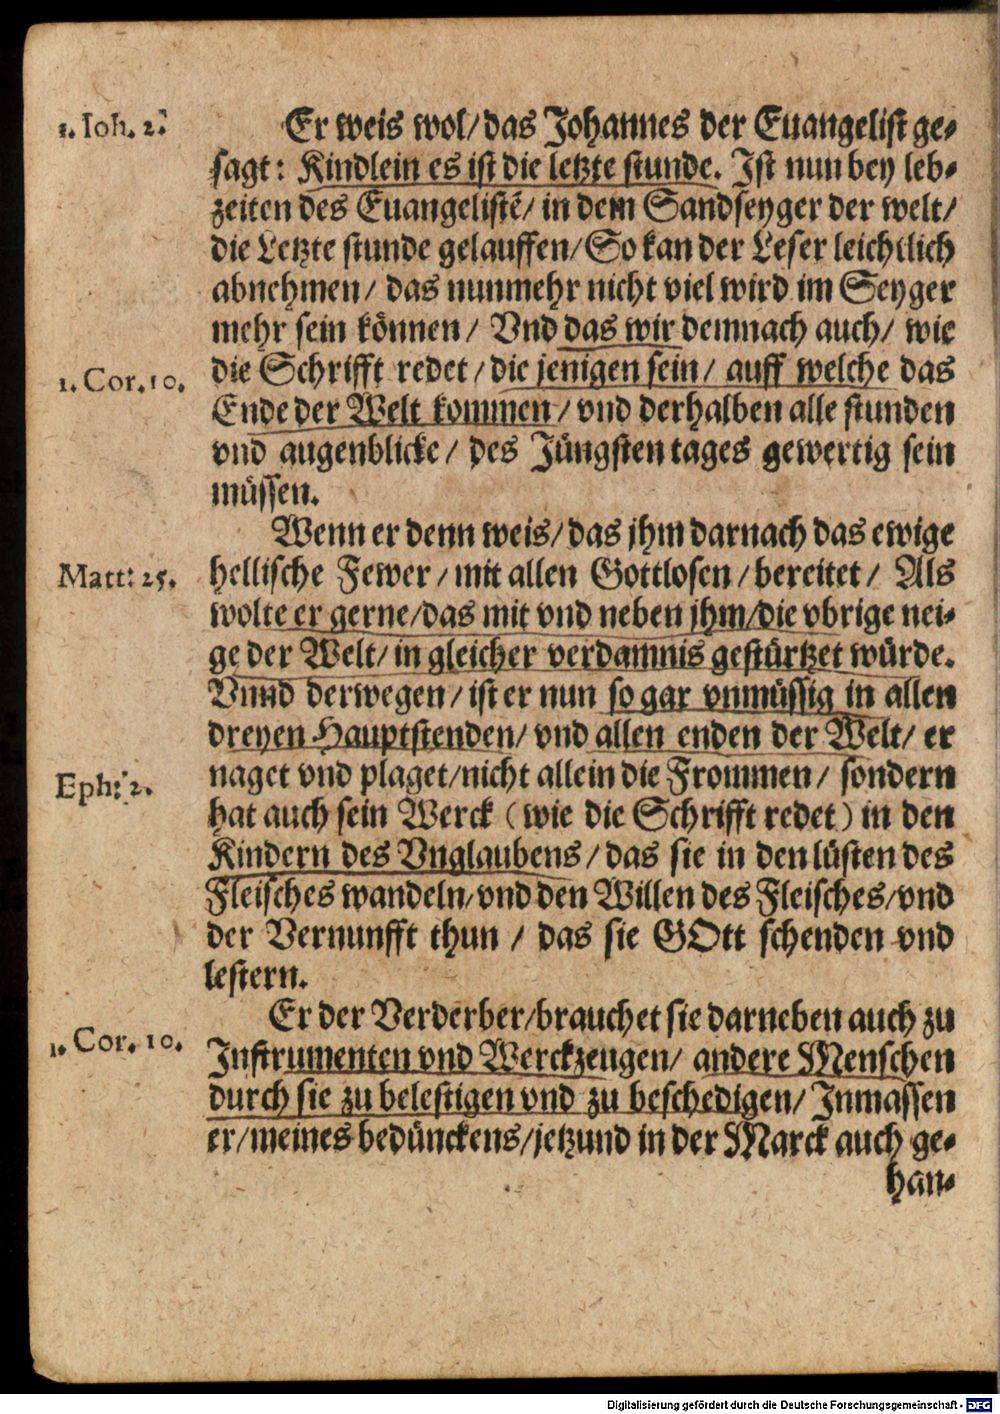 1. Ioh. 2.
Er weis wol/das Johannes der Euangelist ge-
sagt: Kindlein es ist die letzte stunde. Ist nun bey leb-
zeiten des Euangelistẽ/ in dem Sandseyger der welt/
die Letzte stunde gelauffen/So kan der Leser leichtlich
abnehmen/ das nunmehr nicht viel wird im Seyger
mehr sein können/ Vnd das wir demnach auch/ wie
1. Cor. 10.
die Schrifft redet/die jenigen sein/ auff welche das
Ende der Welt kommen/vnd derhalben alle stunden
vnd augenblicke/ des Jüngsten tages gewertig sein
müssen.
Wenn er denn weis/das jhm darnach das ewige
Matt: 25.
hellische Fewer/mit allen Gottlosen/bereitet/ Als
wolte er gerne/das mit vnd neben jhm/die vbrige nei-
ge der Welt/ in gleicher verdamnis gestürtzet würde.
Vnnd derwegen/ist er nun so gar vnmüssig in allen
dreyen Hauptstenden/ vnd allen enden der Welt/ er
Eph: 2.
naget vnd plaget/nicht allein die Frommen/ sondern
hat auch sein Werck (wie die Schrifft redet) in den
Kindern des Vnglaubens/das sie in den lüsten des
Fleisches wandeln/vnd den Willen des Fleisches/vnd
der Vernunfft thun/ das sie GOtt schenden vnd
lestern.
Er der Verderber/brauchet sie darneben auch zu
1. Cor. 10.
Instrumenten vnd Werckzeugen/ andere Menschen
durch sie zu belestigen vnd zu beschedigen/ Inmassen
er/meines bedünckens/jetzund in der Marck auch ge-
han-
Digitalisierung gefördert durch die Deutsche Forschungsgemeinschaft - DFG